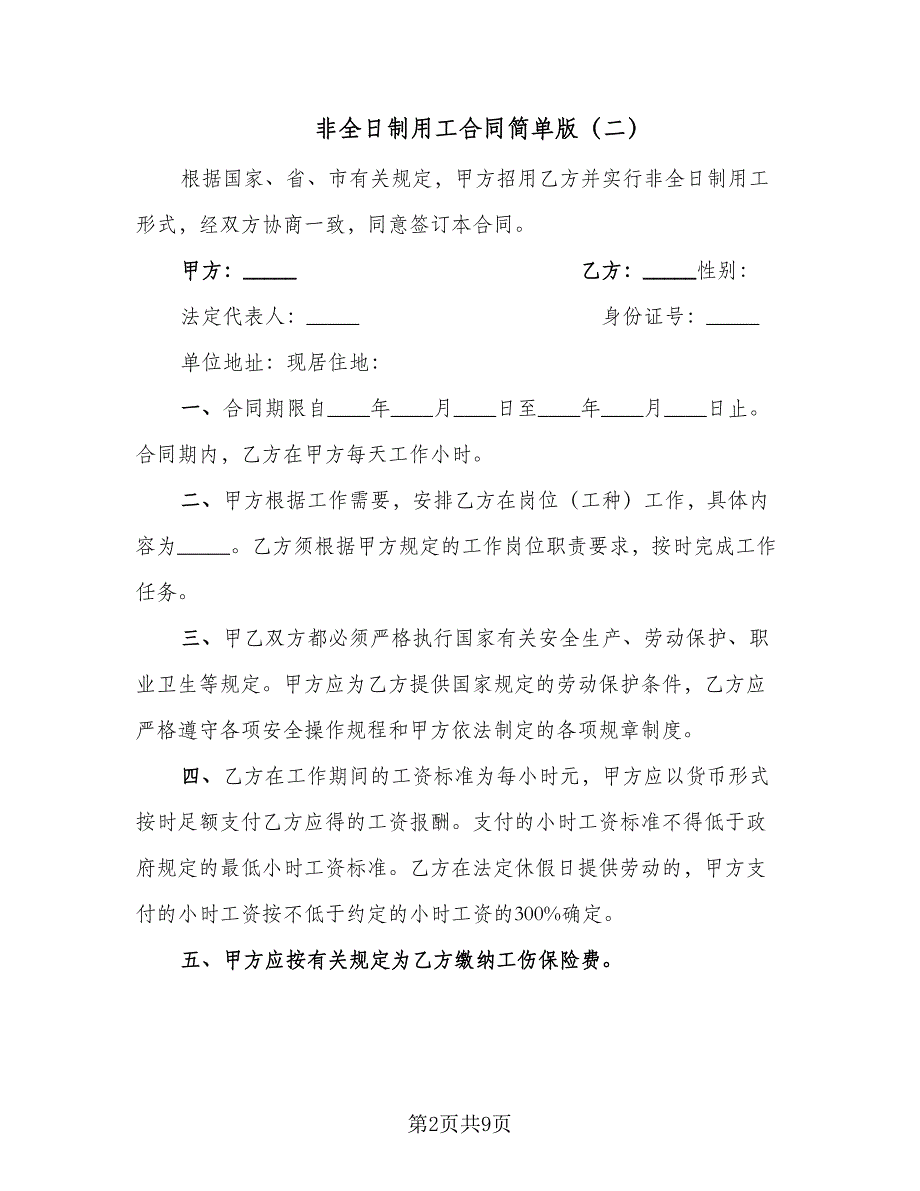 非全日制用工合同简单版（二）
根据国家、省、市有关规定，甲方招用乙方并实行非全日制用工
形式，经双方协商一致，同意签订本合同。
甲方：_____ 乙方：_____性别：
法定代表人：_____ 身份证号：_____
单位地址：现居住地：
一、合同期限自____年____月____日至____年____月____日止。
合同期内，乙方在甲方每天工作小时。
二、甲方根据工作需要，安排乙方在岗位（工种）工作，具体内
容为_____。乙方须根据甲方规定的工作岗位职责要求，按时完成工作
任务。
三、甲乙双方都必须严格执行国家有关安全生产、劳动保护、职
业卫生等规定。甲方应为乙方提供国家规定的劳动保护条件，乙方应
严格遵守各项安全操作规程和甲方依法制定的各项规章制度。
四、乙方在工作期间的工资标准为每小时元，甲方应以货币形式
按时足额支付乙方应得的工资报酬。支付的小时工资标准不得低于政
府规定的最低小时工资标准。乙方在法定休假日提供劳动的，甲方支
付的小时工资按不低于约定的小时工资的300%确定。
五、甲方应按有关规定为乙方缴纳工伤保险费。
第2页共9页